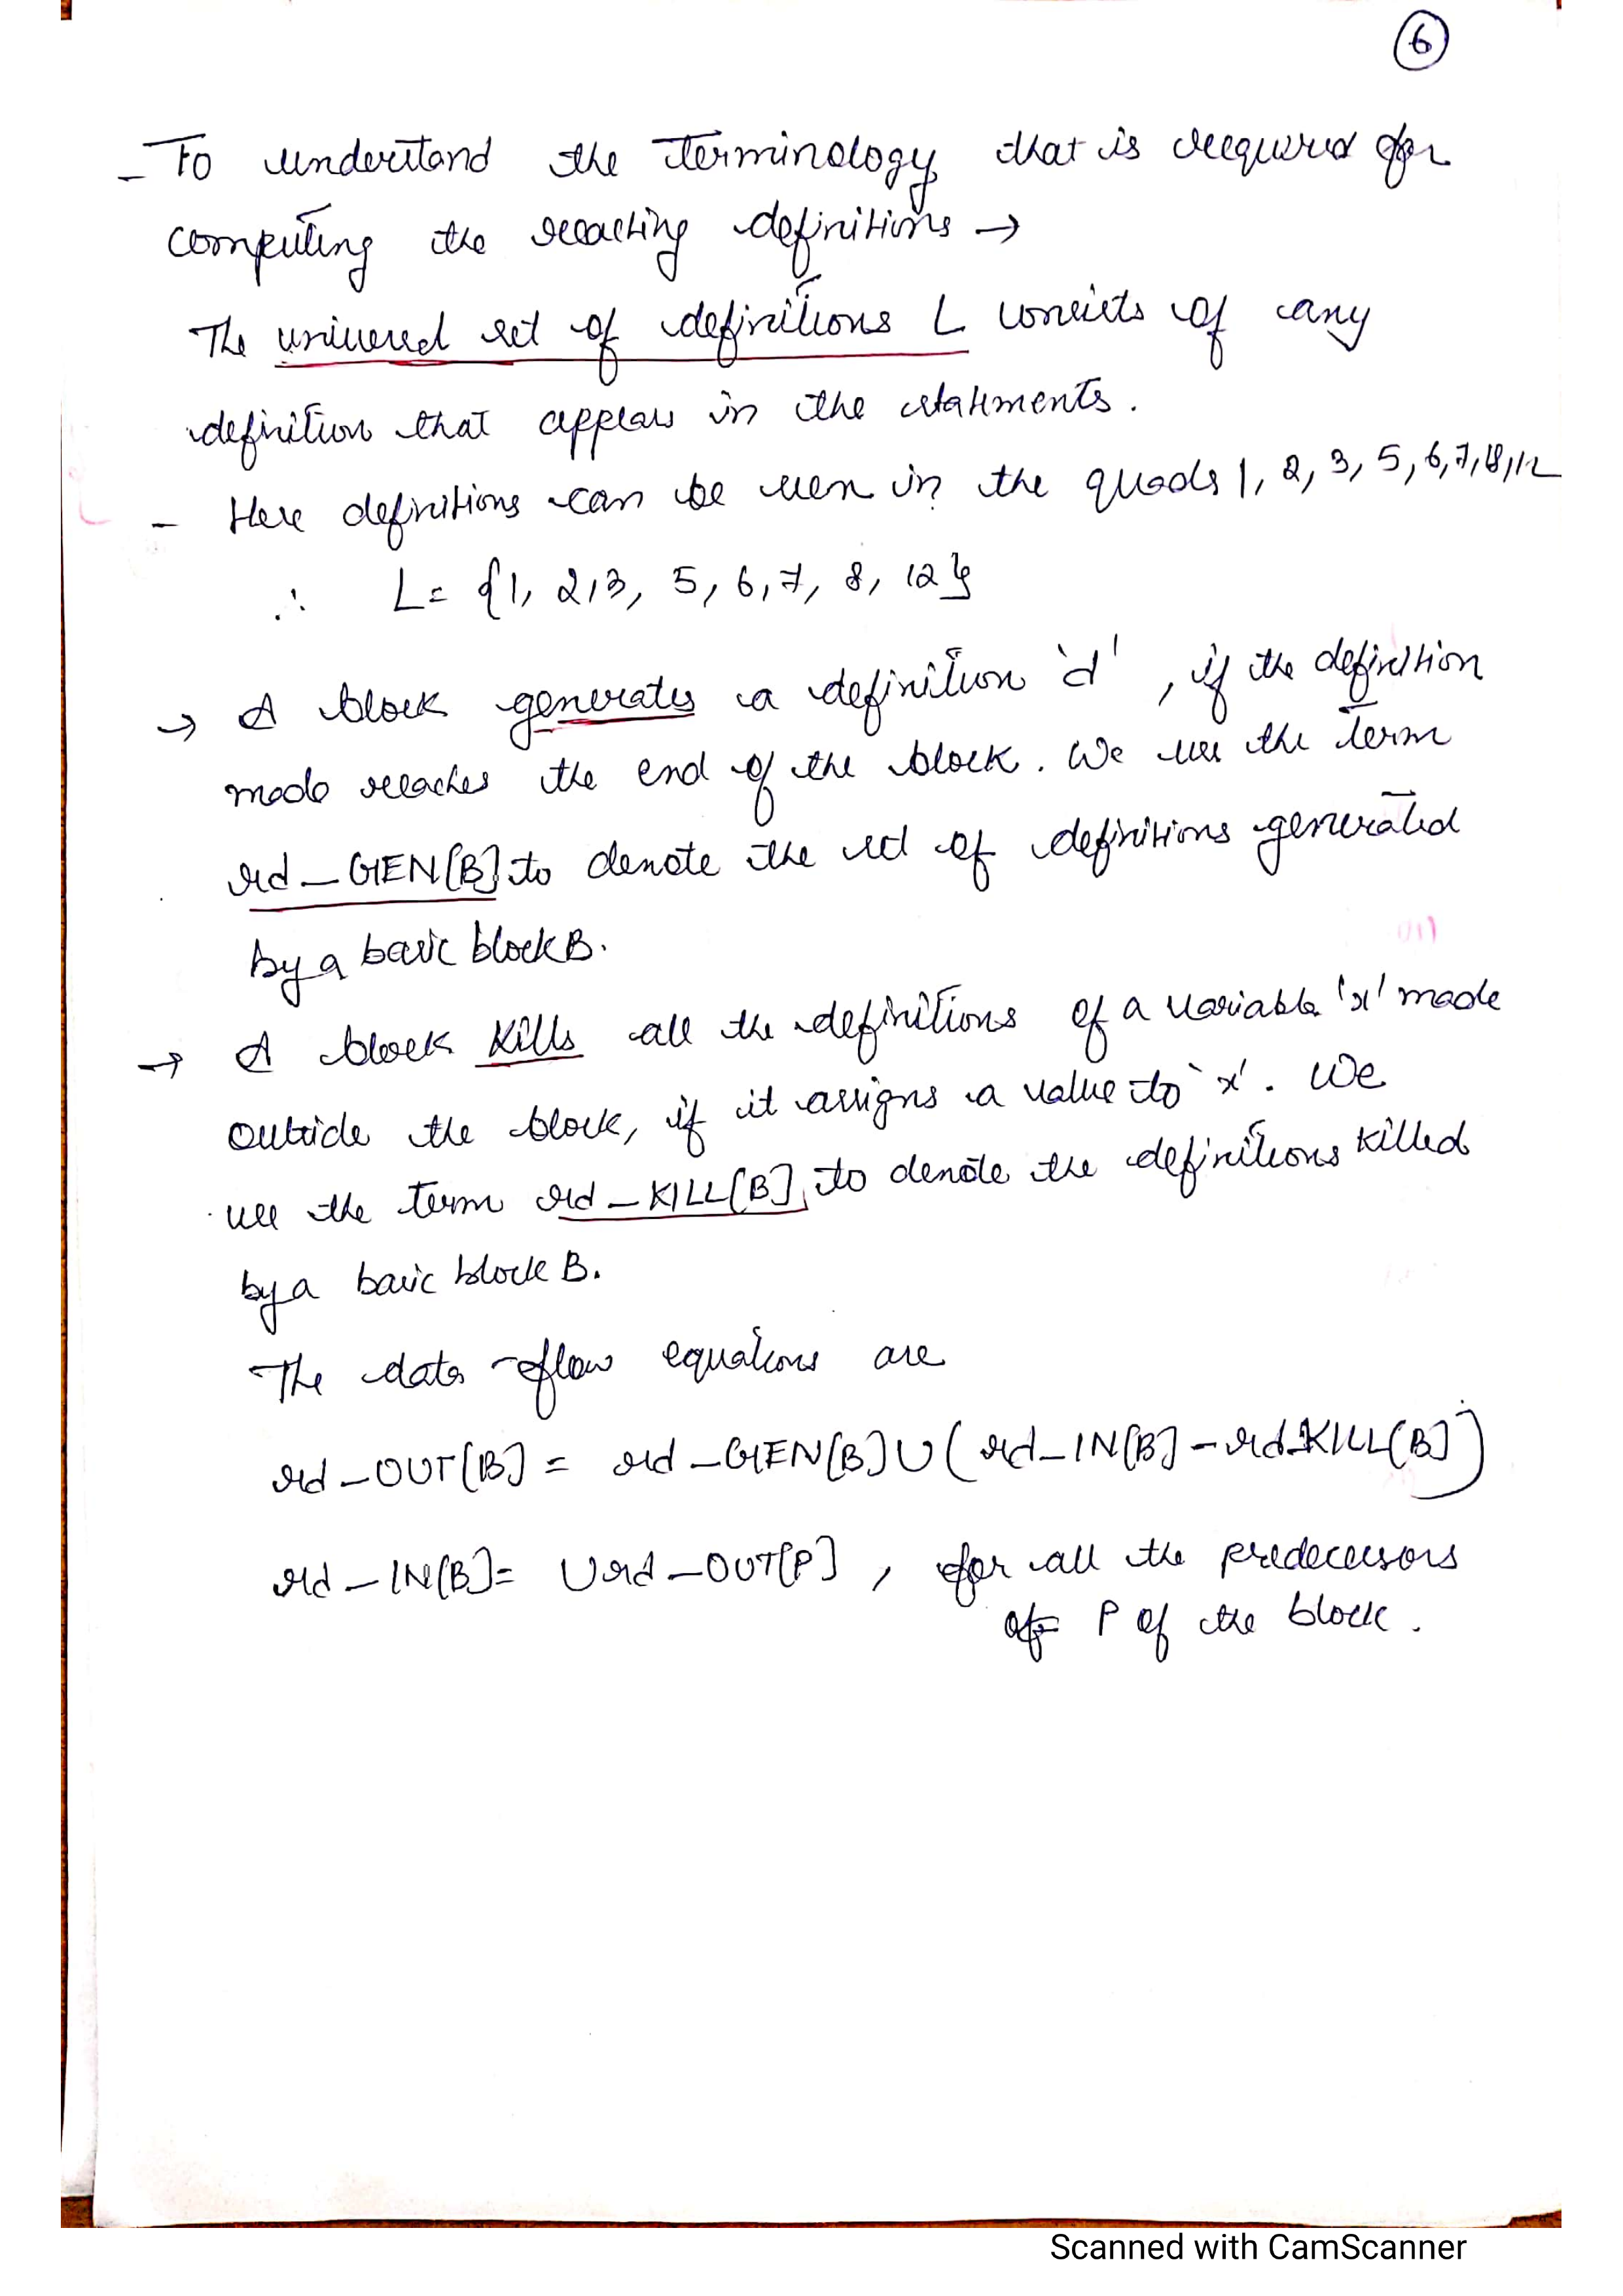 6
- To understand the terminology that is required for
computing the reaching definitions →
The universal set of definitions L consists of any
definition that appears in the statements.
- Here definitions can be seen in the quads 1, 2, 3, 5, 6, 7, 8, 12
∴ L = {1, 2, 3, 5, 6, 7, 8, 12}
→ A block generates a definition 'd', if the definition
made reaches the end of the block. We use the term
rd_GEN[B] to denote the set of definitions generated
by a basic block B.
→ A block kills all the definitions of a variable 'x' made
outside the block, if it assigns a value to 'x'. We
use the term rd_KILL[B] to denote the definitions killed
by a basic block B.
The data flow equations are
rd_OUT[B] = rd_GEN[B] U (rd_IN[B] - rd_KILL[B])
rd_IN[B] = U rd_OUT[P], for all the predecessors
P of the block.
Scanned with CamScanner